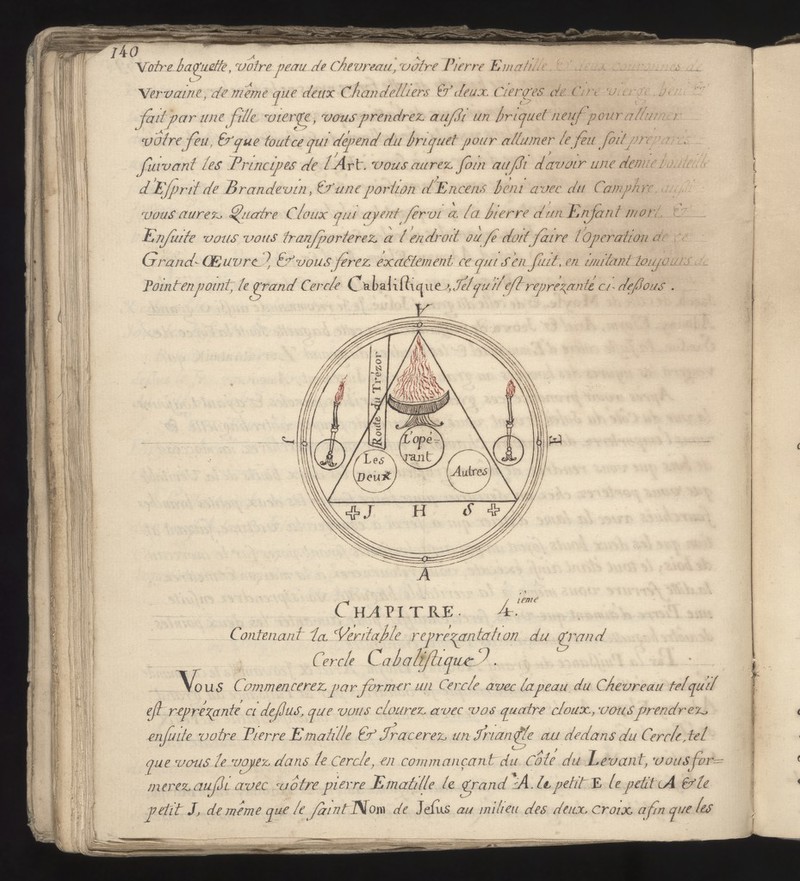 140
Votre baguette, vôtre peau de Chevreau, vôtre Pierre Ematille, & deux Couronnes de
Vervaine, de même que deux Chandelliers & deux Cierges de Cire vierge, béni &
fait par une fille vierge, vous prendrez aussi un briquet neuf pour allumer
vôtre feu, & que tout ce qui dépend du briquet pour allumer le feu soit préparés
suivant les Principes de l'Art. vous aurez soin aussi d'avoir une demie bouteille
d'Esprit de Brandevin, & une portion d'Encens béni avec du Camphre, aussi
vous aurez Quatre Cloux qui ayent servi à la bierre d'un Enfant mort, &
Ensuite vous vous transporterez à l'endroit où se doit faire l'Opération de ce
Grand-Œuvre, & vous ferez éxactement ce qui s'en suit, en imitant toujours de
Point en point, le grand Cercle Cabalistique, Tel qu'il est reprézanté ci-dessous.
V
Route du Trézor
J
E
L'opé=
rant
Les
Deux
Autres
J H S
A
CHAPITRE. 4.ieme
Contenant la Véritable reprézantation du grand
Cercle Cabalistique.
Vous Commencerez par former un Cercle avec la peau du Chevreau tel qu'il
est reprézanté ci dessus, que vous clourez avec vos quatre cloux, vous prendrez
ensuite votre Pierre Ematille & Tracerez un Triangle au dedans du Cercle, tel
que vous le voyez dans le Cercle, en commançant du Côté du Levant, vous for=
merez aussi avec vôtre pierre Ematille le grand A. le petit E le petit A & le
petit J, de même que le saint Nom de Jesus au milieu des deux Croix, afin que les